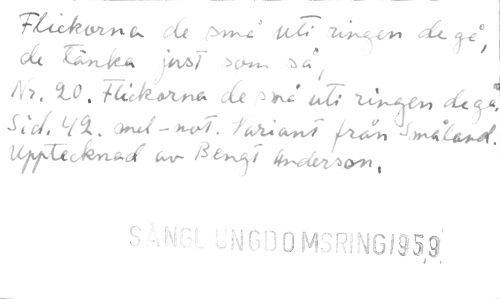 Flickorna de små uti ringen de gå,
de tänka just som så,
Nr. 20. Flickorna de små uti ringen de gå.
Sid. 42. mel-not. Variant från Småland.
Upptecknad av Bengt Anderson.
SÅNGL UNGDOMSRING 1959